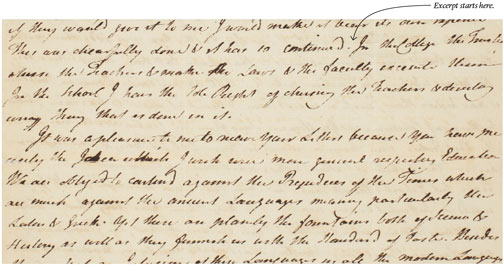 Excerpt starts here.
if they would give it to me I would make it bear its own expence
This was chearfully done & it has so continued. In the College the Trustees
chuse the Teachers & make the Laws & the faculty execute them
In the School I have the sole Right of chusing the Teachers & directing
every Thing that is done in it.
It was a pleasure to me to receive your Letter because you have
the Ideas which I wish were more general respecting Education
We are obliged to contend against the Prejudices of the Times which
are much against the ancient Languages meaning particularly the
Latin & Greek. Yet these are plainly the fountains both of Science &
History as well as they furnish us with the Standard of Taste. Besides
these Languages as all the modern Languages